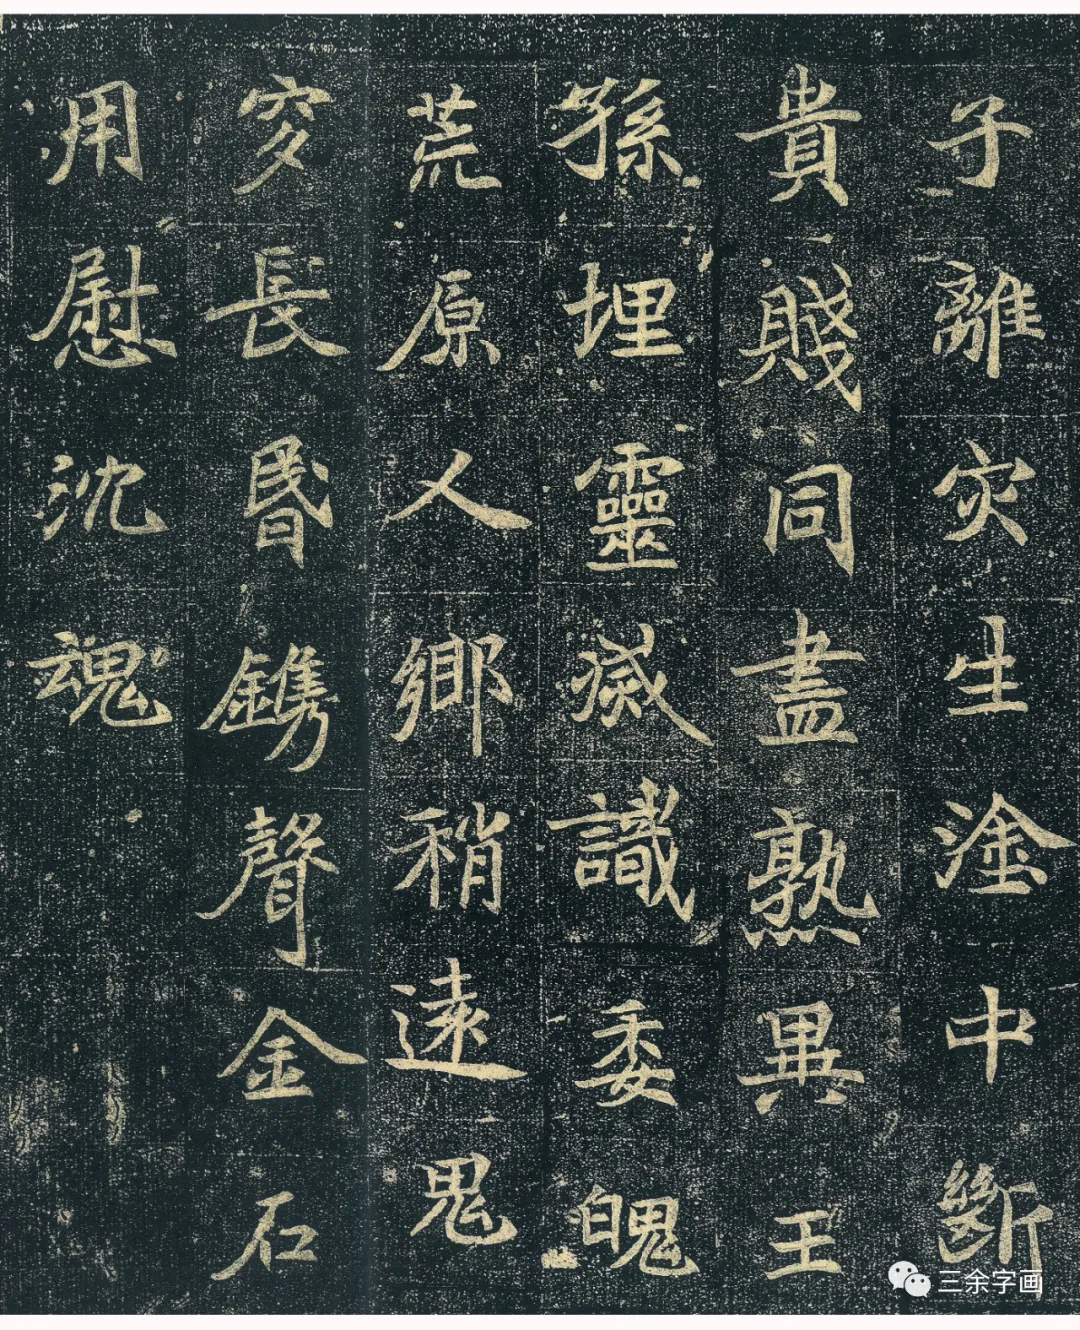 子離灾生塗中斷
貴賤同盡熟異王
孫埋靈滅識委魄
荒原人鄉稍遠鬼
穸長昏鐫聲金石
用慰沈魂
三余字画